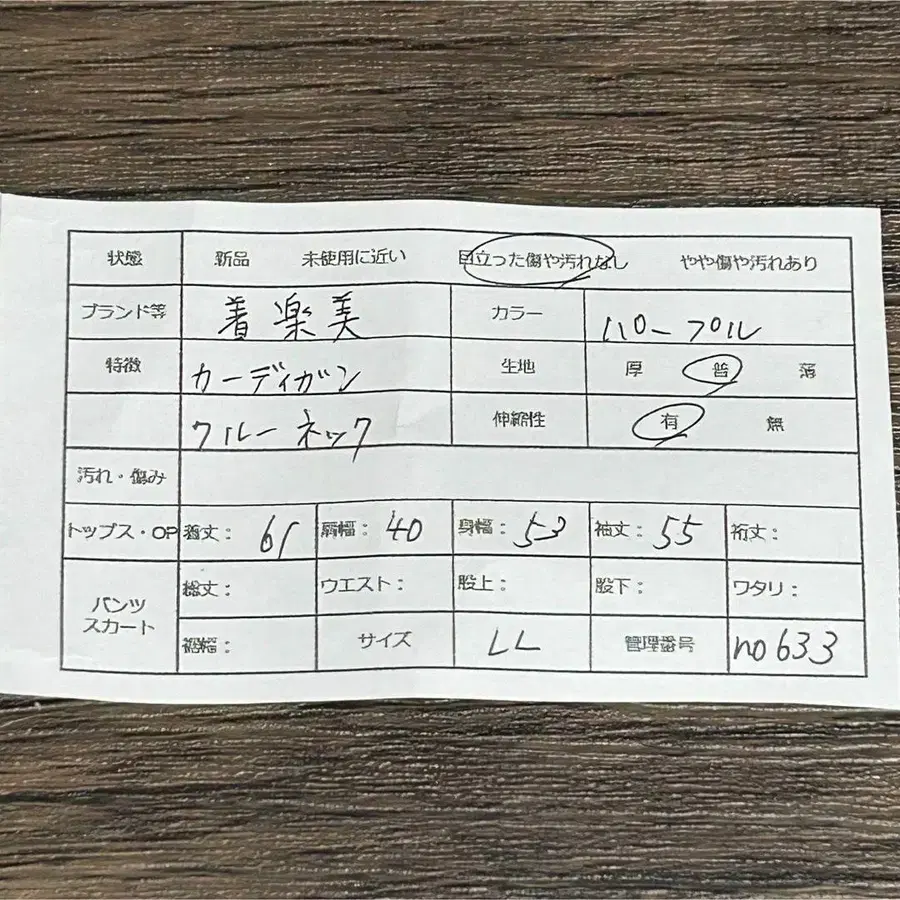 状態 新品 未使用に近い 目立った傷や汚れなし やや傷や汚れあり
ブランド等 着楽美 カラー パープル
特徴 カーディガン 生地 厚 普 薄
クルーネック 伸縮性 有 無
汚れ・傷み
トップス・OP 着丈： 61 肩幅： 40 身幅： 53 袖丈： 55 裄丈：
パンツ スカート 総丈： ウエスト： 股上： 股下： ワタリ：
裾幅： サイズ LL 管理番号 no633